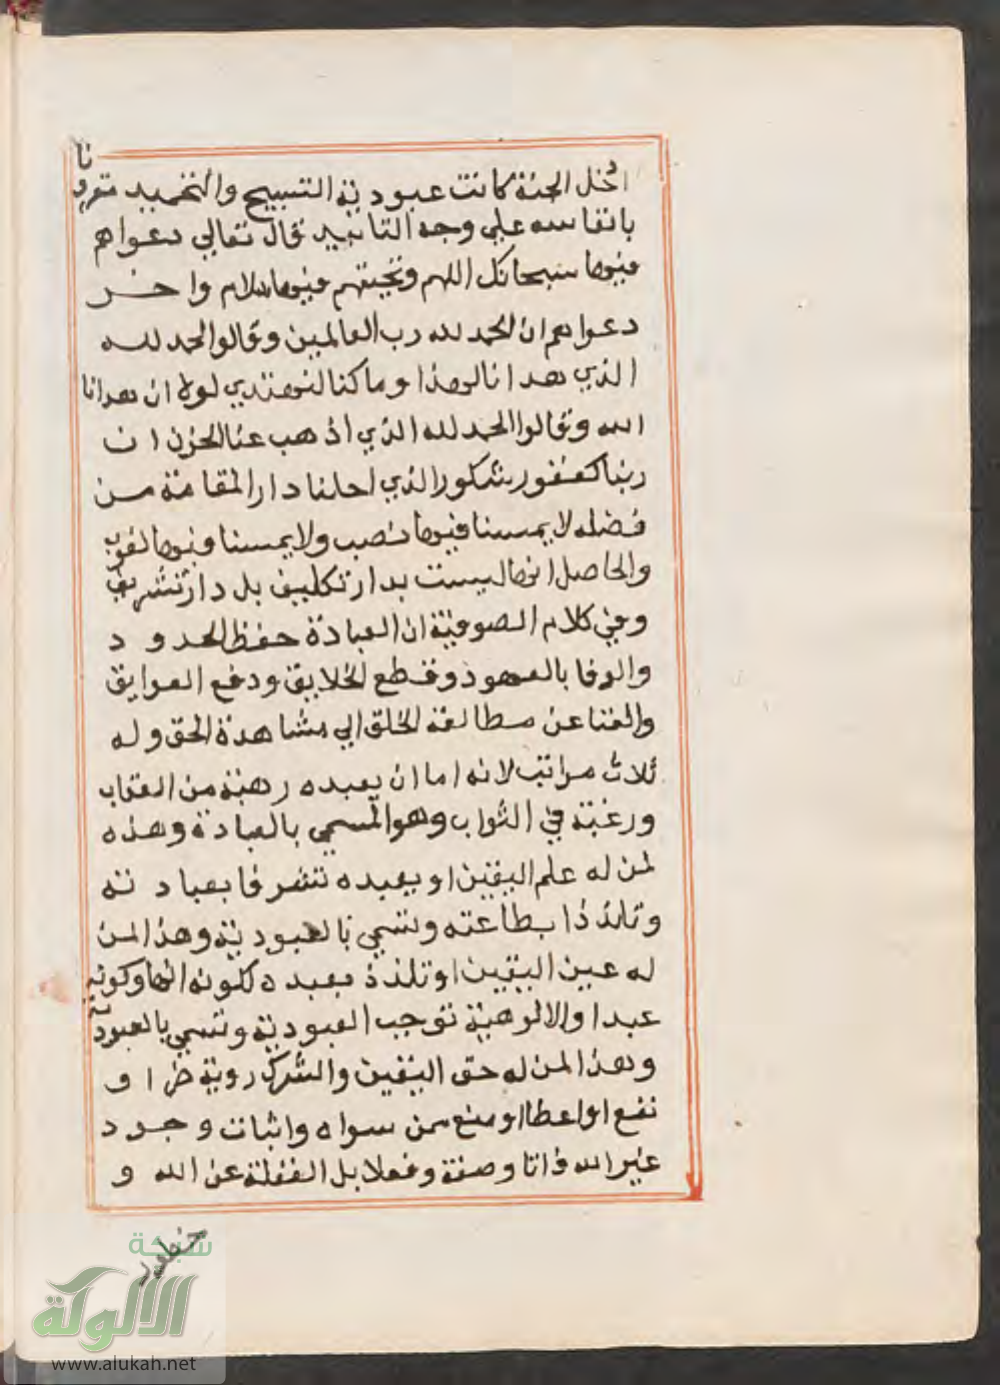 ادخل الجنة كانت عبودية التسبيح والتحميد مقرونا
بانفاسه علي وجه التابيد قال تعالي دعواهم
فيها سبحانك اللهم وتحيتهم فيها سلام واخر
دعواهم ان الحمد لله رب العالمين وقالوا الحمد لله
الذي هدانا لهذا وما كنا لنهتدي لولا ان هدانا
الله وقالوا الحمد لله الذي اذهب عنا الحزن ان
ربنا لغفور شكور الذي احلنا دار المقامة من
فضله لا يمسنا فيها نصب ولا يمسنا فيها لغوب
والحاصل انها ليست بدار تكليف بل دار تشريف
وفي كلام الصوفية ان العبادة حفظ الحدود
والوفا بالعهود وقطع الخلايق ودفع العوايق
والفنا عن مطالعة الخلق الي مشاهدة الحق وله
ثلاث مراتب لانه اما ان يعبده رهبة من العقاب
ورغبة في الثواب وهو المسمي بالعبادة وهذه
لمن له علم اليقين او يعبده تشرفا بعبادته
وتلذذا بطاعته وتسمي بالعبودية وهذا لمن
له عين اليقين او تلذذ بعبده لكونه الها وكونه
عبدا والالوهية توجب العبودية وتسمي بالعبودة
وهذا لمن له حق اليقين والشرك روية ضر او
نفع او اعطا او منع ممن سواه واثبات وجود
غير الله ذاتا وصفة وفعلا بل الغفلة عن الله و
شبكة
الألوكة
www.alukah.net